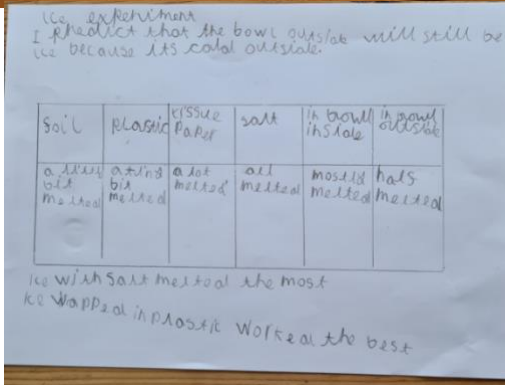 ice experiment
I predict that the bowl outside will still be
ice because its cold outside.
soil
plastic
tissue
paper
salt
in bowl
inside
in bowl
outside
a tiny
bit
melted
a tiny
bit
melted
a lot
melted
all
melted
mostly
melted
half
melted
ice with salt melted the most
ice wapped in plastic worked the best